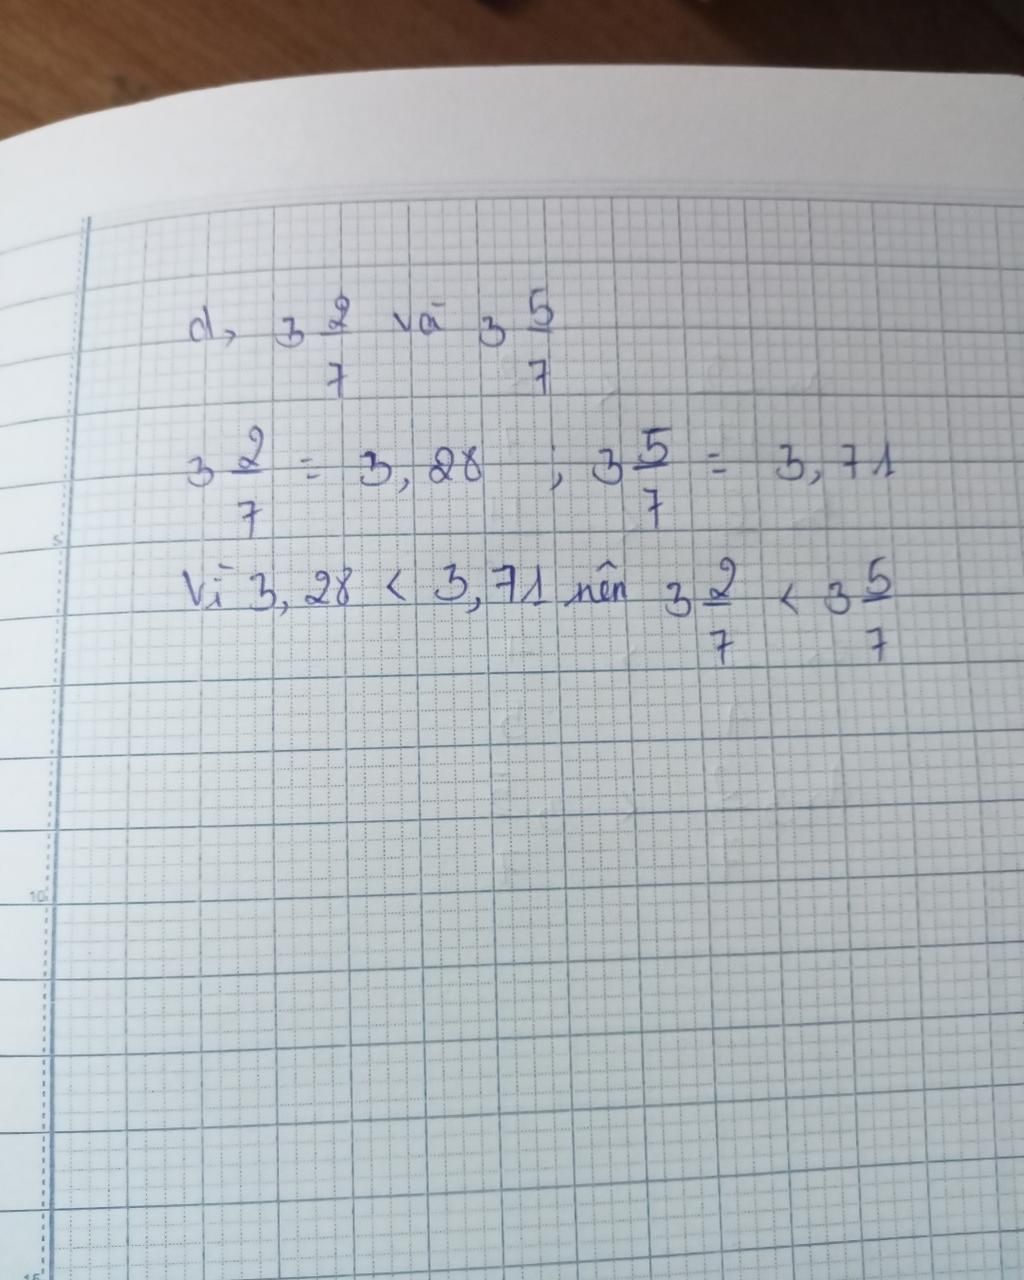 d, 3 2/7 và 3 5/7
3 2/7 = 3,28 ; 3 5/7 = 3,71
Vì 3,28 < 3,71 nên 3 2/7 < 3 5/7
5
10
15